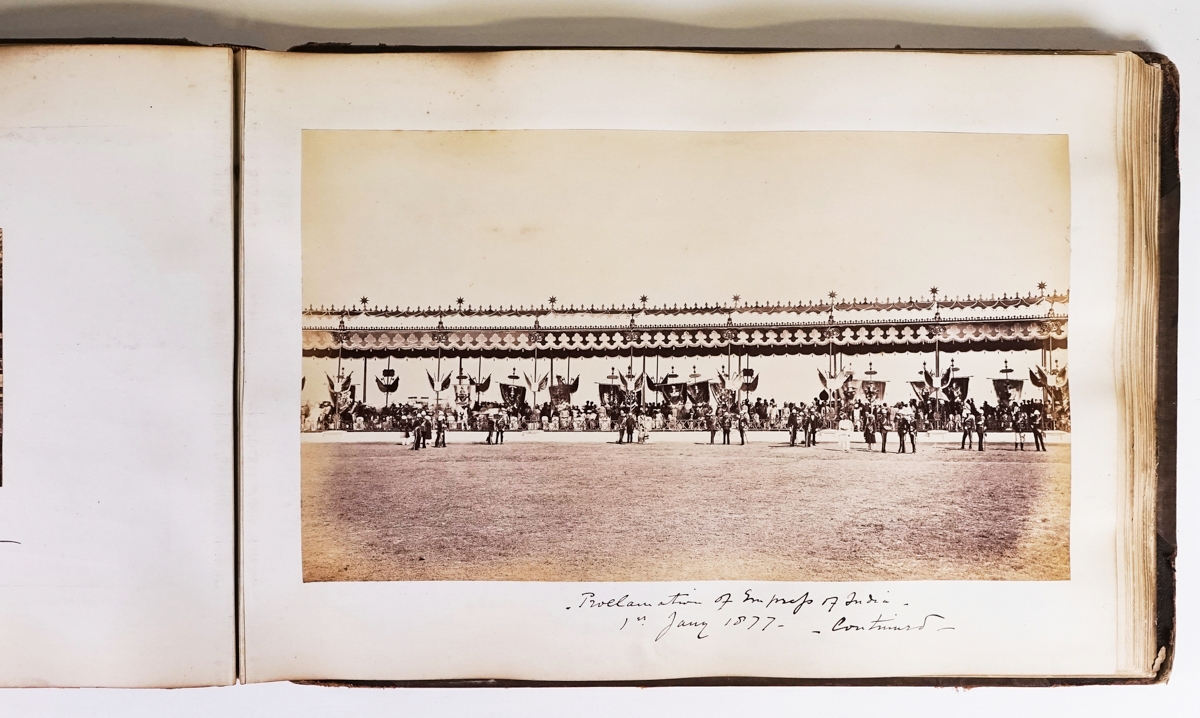 - Proclamation of Empress of India -
1st Jany 1877 - - Continued -